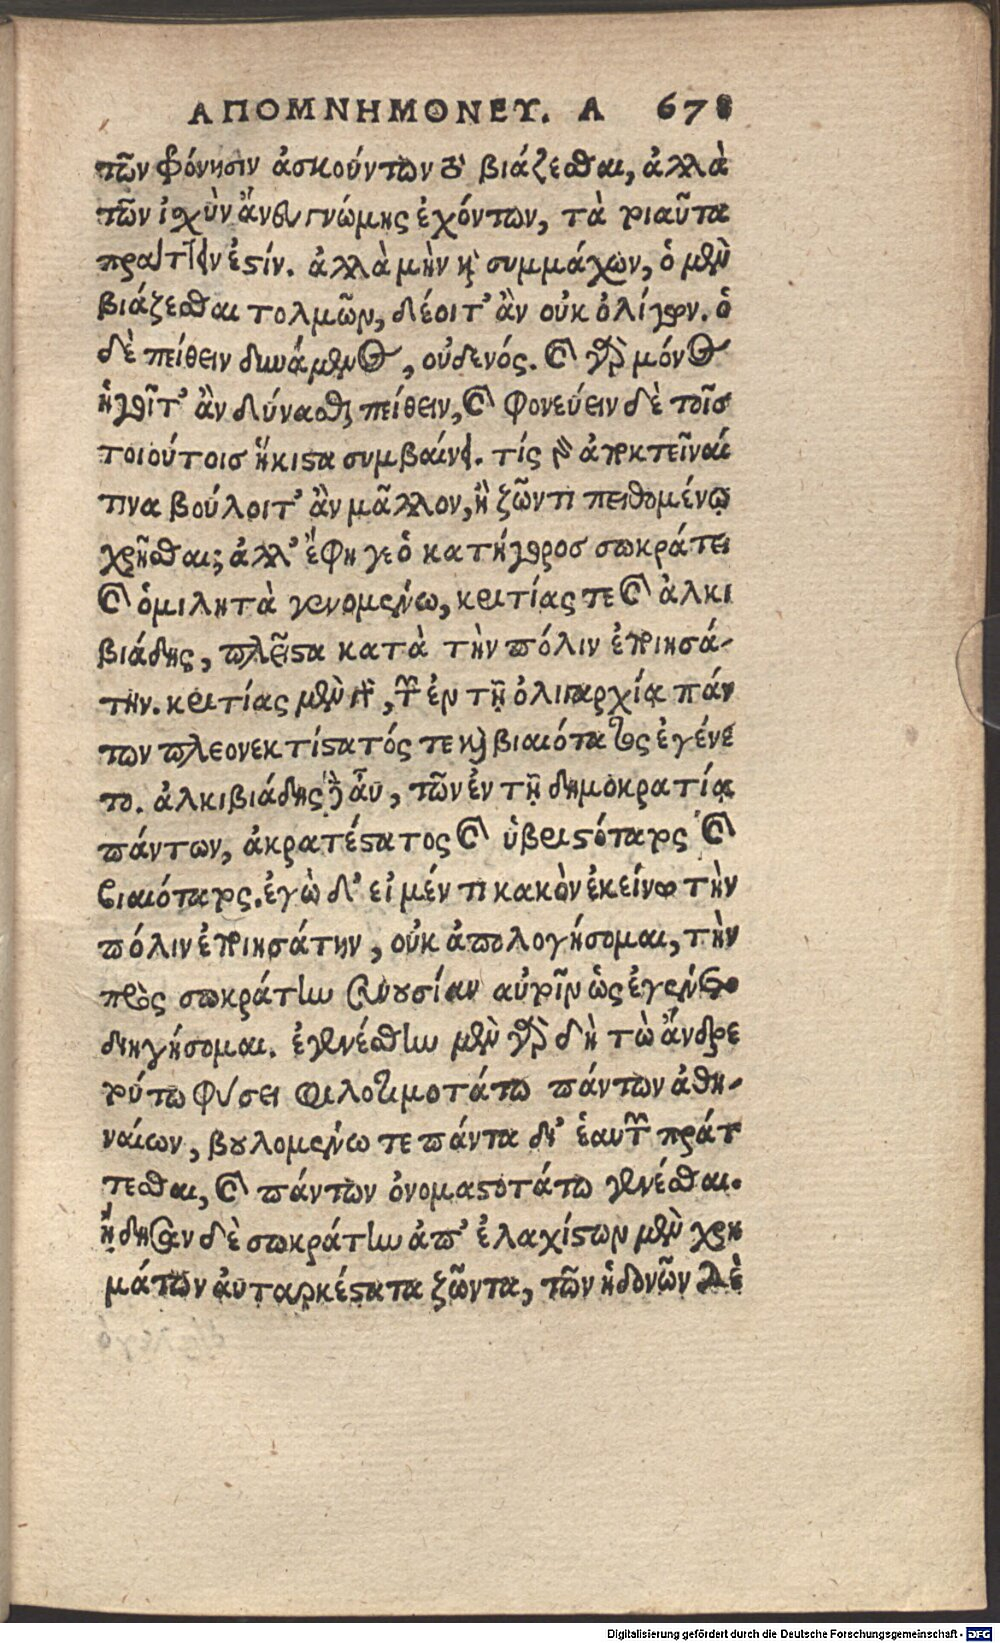 ΑΠΟΜΝΗΜΟΝΕΥ. Α 678
τῶν φρόνησιν ἀσκούντων τὸ βιάζεσθαι, ἀλλὰ
τῶν ἰσχὺν ἄνευ γνώμης ἐχόντων, τὰ τοιαῦτα
πράττειν ἐστίν. ἀλλὰ μὴν καὶ συμμάχων, ὁ μὲν
βιάζεσθαι τολμῶν, δέοιτ' ἂν οὐκ ὀλίγων. ὁ
δὲ πείθειν δυνάμενος, οὐδενός. καὶ γὰρ μόνος
ἡγοῖτ' ἂν δύνασθαι πείθειν, καὶ φονεύειν δὲ τοῖς
τοιούτοις ἥκιστα συμβαίνει. τίς γὰρ ἀποκτεῖναί
τινα βούλοιτ' ἂν μᾶλλον, ἢ ζῶντι πειθομένῳ
χρῆσθαι; ἀλλ' ἔφη γε ὁ κατήγορος σωκράτει
καὶ ὁμιλητὰ γενομένω, κριτίας τε καὶ ἀλκι
βιάδης, πλεῖστα κατὰ τὴν πόλιν ἐποιησά-
την. κριτίας μὲν γὰρ, τῶν ἐν τῇ ὀλιγαρχίᾳ πάν
των πλεονεκτίστατός τε καὶ βιαιότατος ἐγένε
το. ἀλκιβιάδης δὲ αὖ, τῶν ἐν τῇ δημοκρατίᾳ
πάντων, ἀκρατέστατος καὶ ὑβριστότατος καὶ
βιαιότατος. ἐγὼ δ' εἰ μέν τι κακὸν ἐκείνω τὴν
πόλιν ἐποιησάτην, οὐκ ἀπολογήσομαι, τὴν
πρὸς σωκράτην συνουσίαν αὐτοῖν ὡς ἐγένετο
διηγήσομαι. ἐγενέσθην μὲν γὰρ δὴ τὼ ἄνδρε
τούτω φύσει φιλοτιμοτάτω πάντων ἀθη-
ναίων, βουλομένω τε πάντα δι' ἑαυτῶν πράτ
τεσθαι, καὶ πάντων ὀνομαστοτάτω γενέσθαι.
ᾔδησαν δὲ σωκράτην ἀπ' ἐλαχίστων μὲν χρη
μάτων αὐταρκέστατα ζῶντα, τῶν ἡδονῶν δὲ
Digitalisierung gefördert durch die Deutsche Forschungsgemeinschaft - DFG